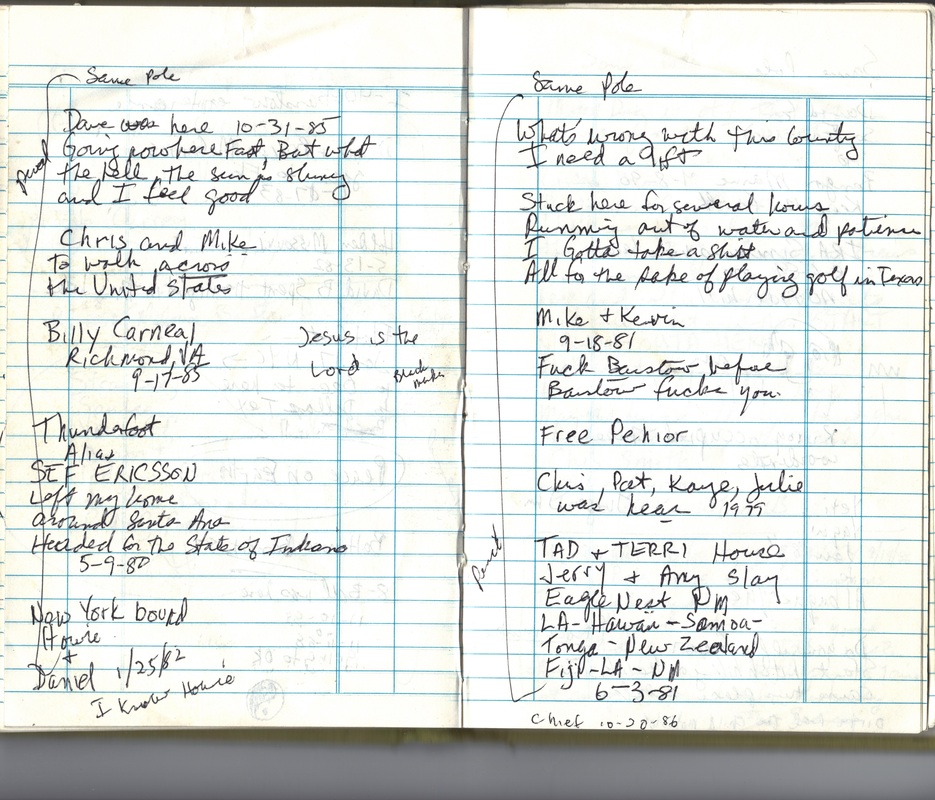 Same Pole
Dave was here 10-31-85
Going nowhere Fast, But what
the hell, the sun is shining
and I feel good
Chris and Mike
to walk across
the United States
Billy Carneal
Richmond, VA
9-17-85
Jesus is the
Lord
Black
marker
Thunderfoot
Alias
SEF ERICSSON
Left my home
around Santa Ana
Headed for the State of Indiana
5-9-80
New York bound
Howie
+
Daniel 1/25/82
I know Howie
Same Pole
What's wrong with this County
I need a lift
Stuck here for several hours
Running out of water and patience
I Gotta take a shit
All for the sake of playing golf in Texas
Mike + Kevin
9-18-81
Fuck Barstow before
Barstow fucks you.
Free Pehior
Chis, Pat, Kaye, Julie
was hear 1979
pencil
TAD + TERRI House
Jerry + Amy Slay
Eagle Nest NM
LA-Hawaii-Samoa-
Tonga-New Zealand
Fiji-LA-NM
6-3-81
Chief 10-20-86